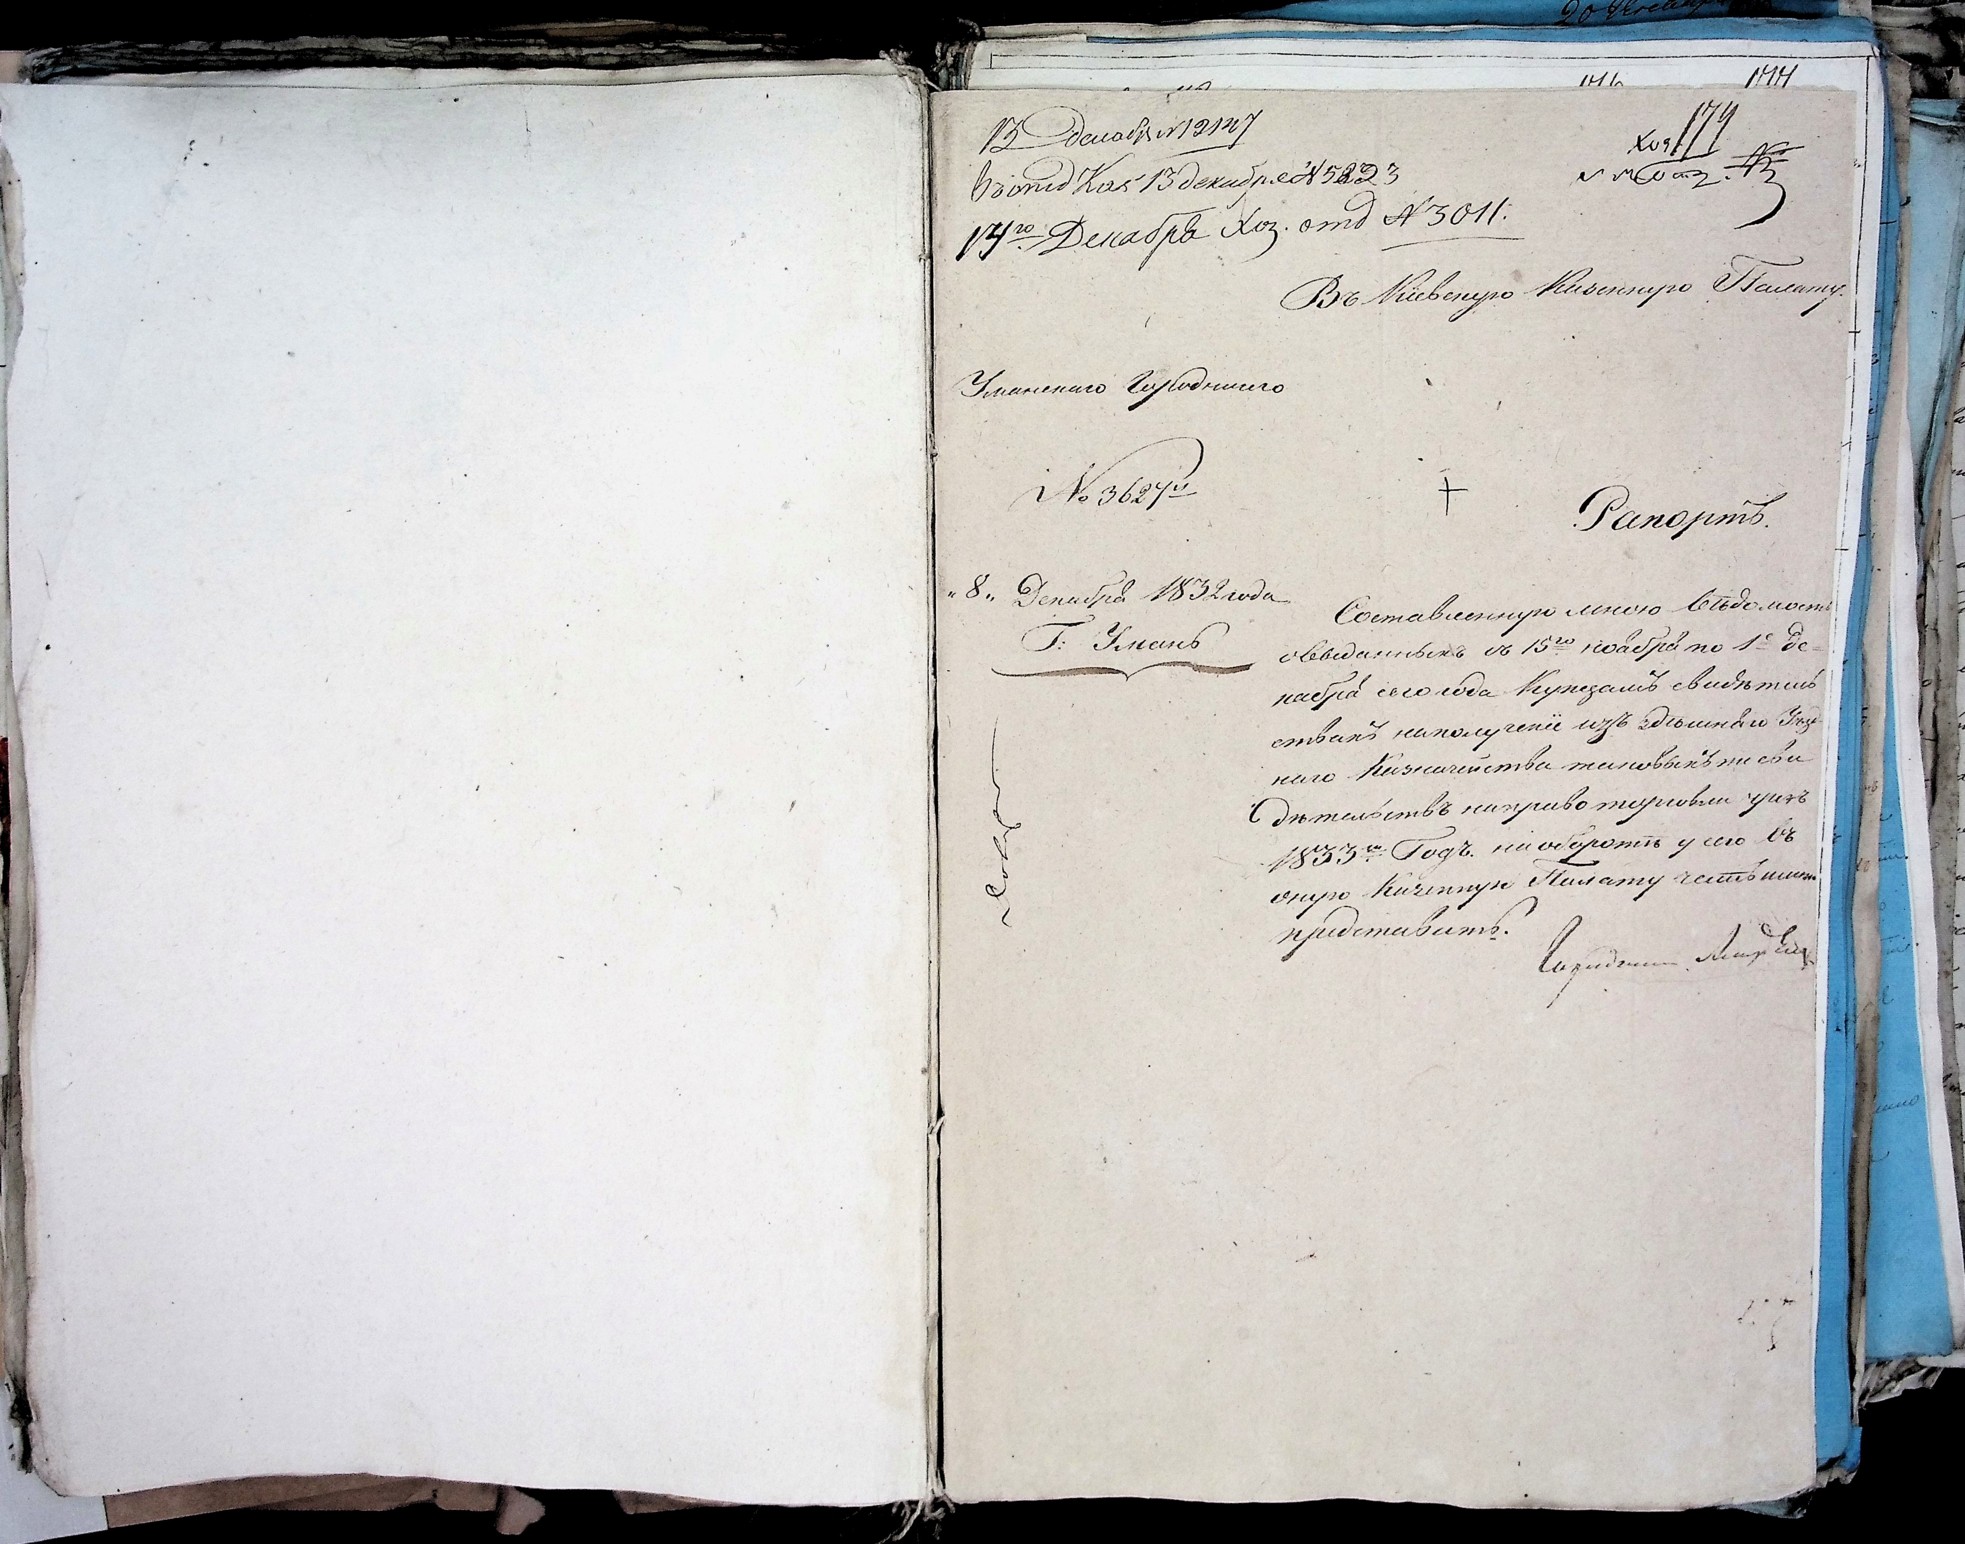 179
13 декабр N 12147
въ отд Каз 13 декабре N 5823
14го Декабря Хоз. отд N 3011.
Въ Кіевскую Казенную Палату.
Уманскаго Городничего
No 3627й
Рапортъ.
"8" Декабря 1832 года
Г: Умань
Составленную мною Вѣдомость
о выданныхъ съ 15го ноября по 1е де-
кабря сего года Купцамъ свидѣтель
ствахъ на полученіе изъ здѣшняго Уѣзд
наго Казначейства таковыхъ же сви
дѣтельствъ на право торговли чрезъ
1833й Годъ. на оборотѣ у сего въ
оную Казенную Палату честь имѣю
представить.
Городничий